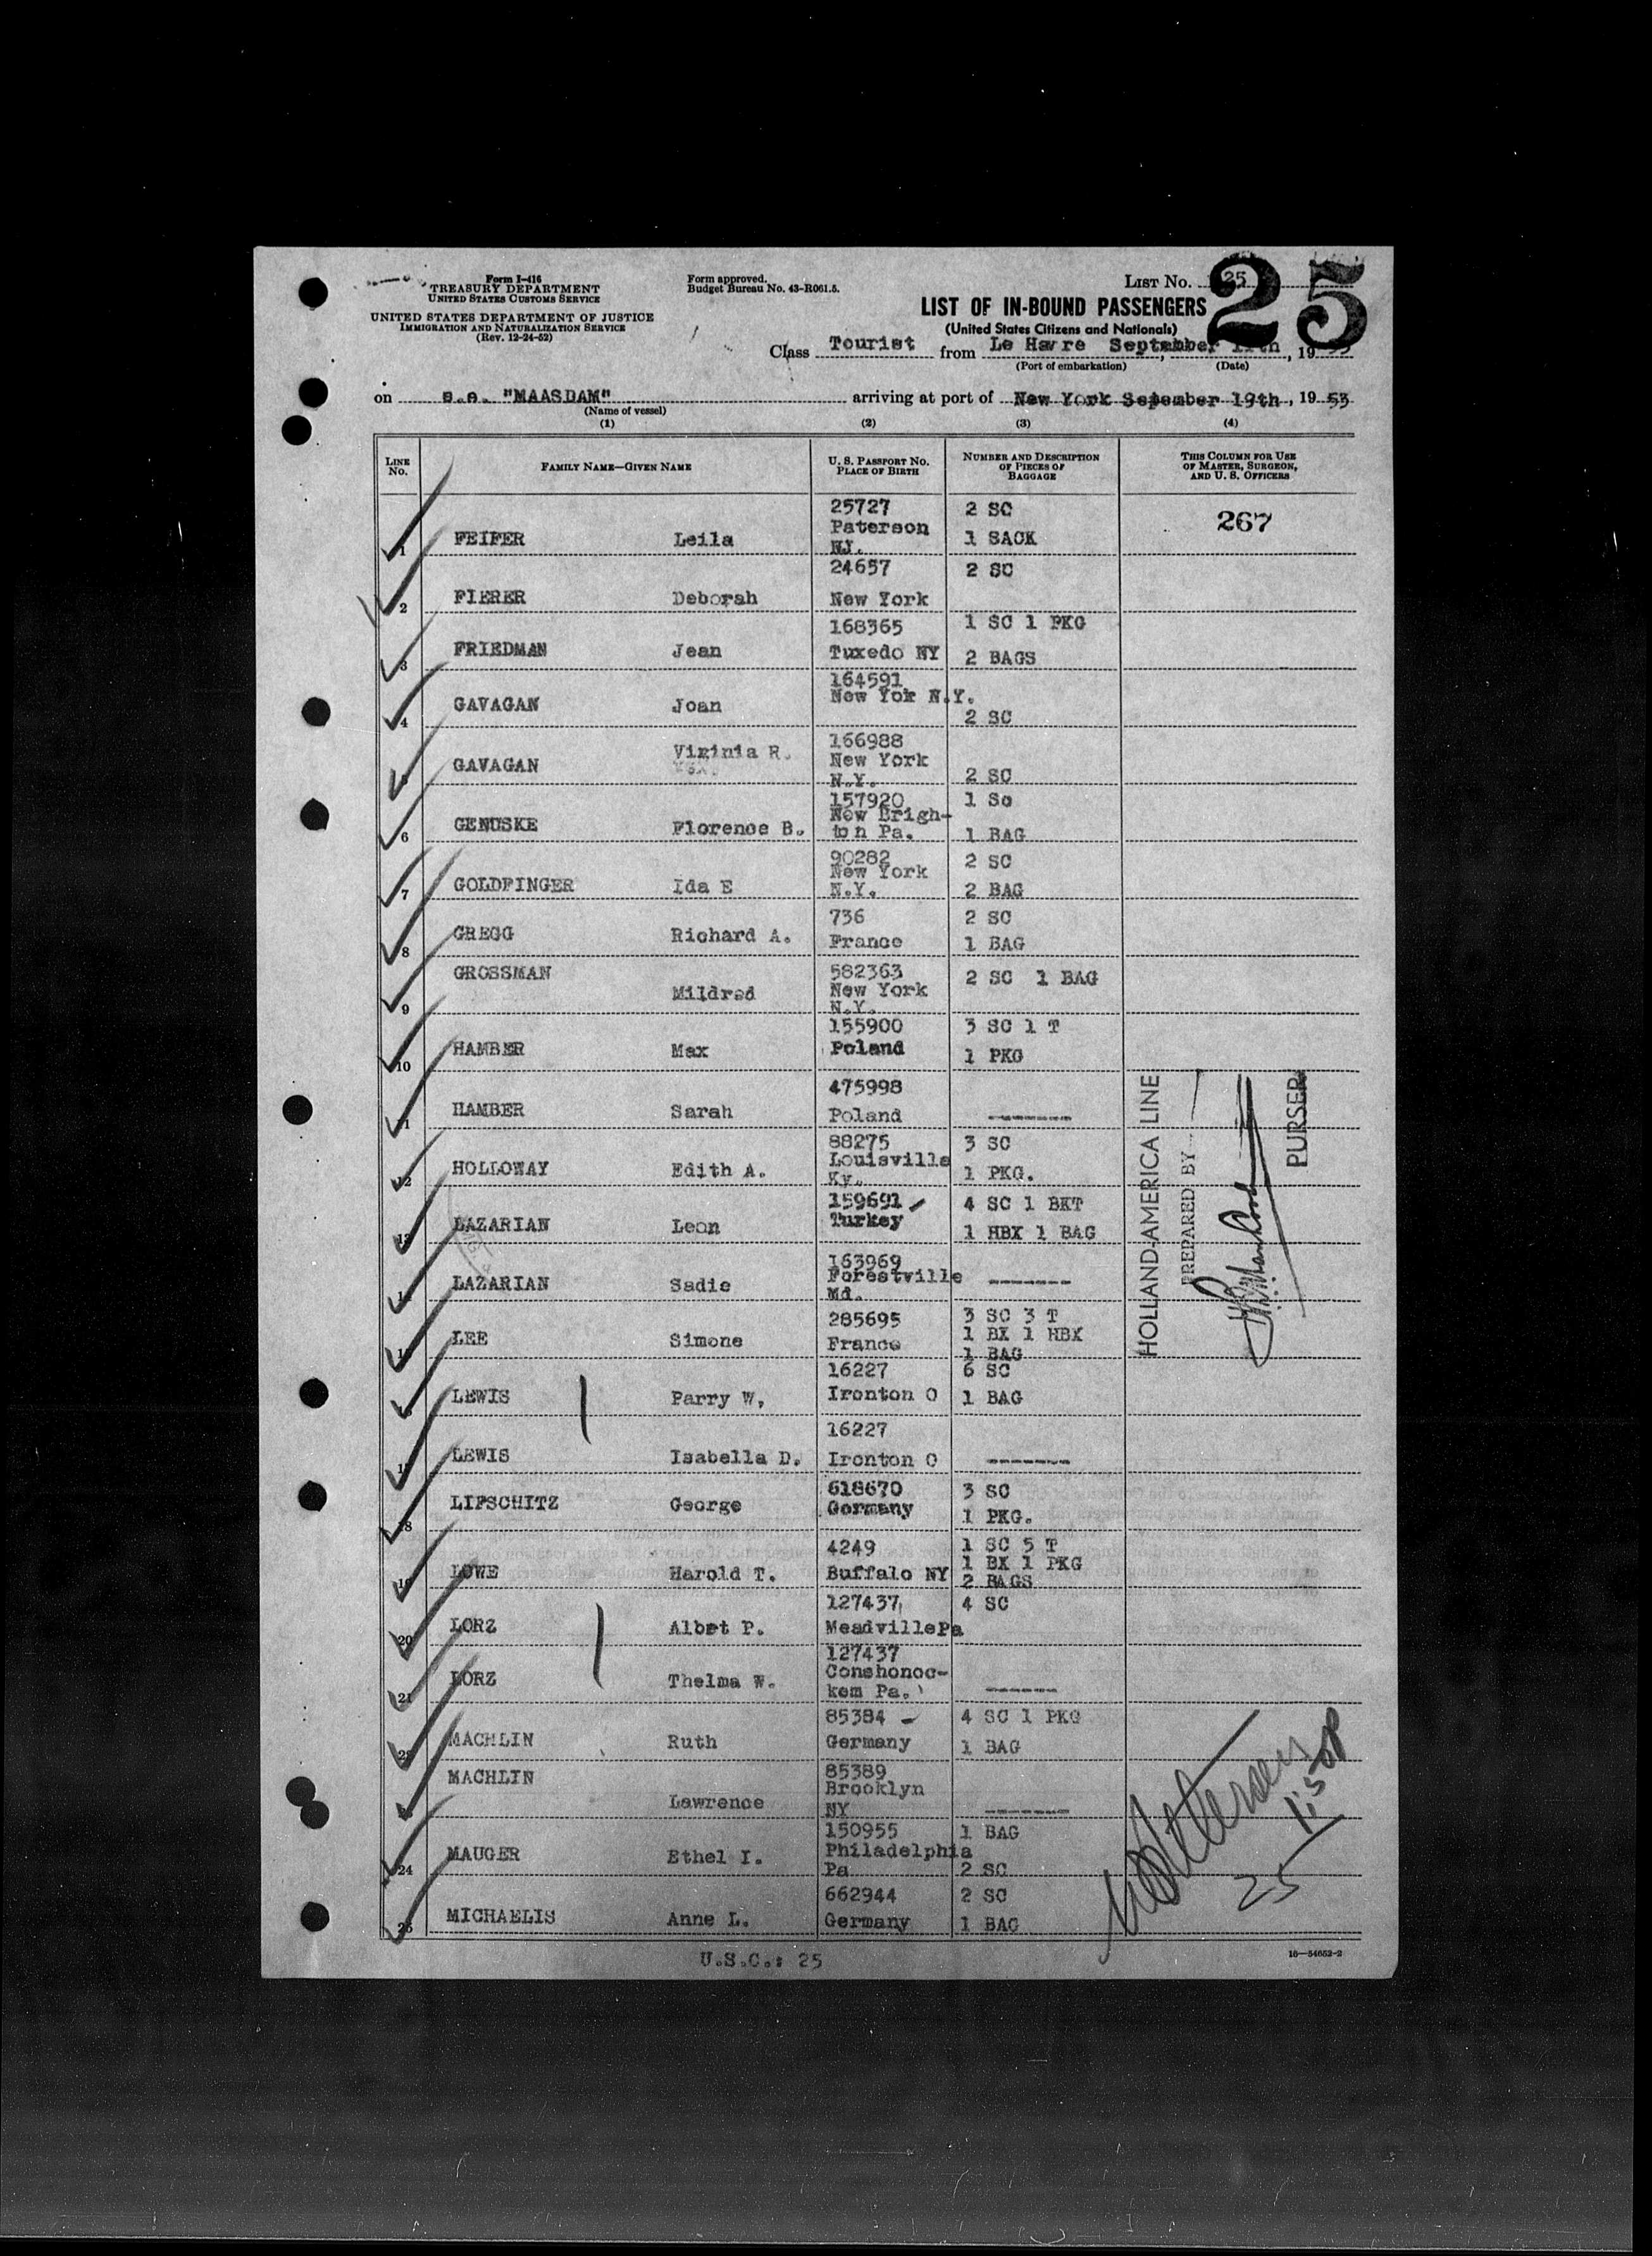 Form I-416
TREASURY DEPARTMENT
UNITED STATES CUSTOMS SERVICE
UNITED STATES DEPARTMENT OF JUSTICE
IMMIGRATION AND NATURALIZATION SERVICE
(Rev. 12-24-52)
Form approved.
Budget Bureau No. 43-R061.5.
LIST No. 25
25
LIST OF IN-BOUND PASSENGERS
(United States Citizens and Nationals)
Class Tourist from Le Havre September 11th, 1953
(Port of embarkation) (Date)
on s.s. "MAASDAM" arriving at port of New York Sepember 19th, 1953
(Name of vessel)
(1) (2) (3) (4)
LINE No. FAMILY NAME—GIVEN NAME U. S. PASSPORT No. PLACE OF BIRTH NUMBER AND DESCRIPTION OF PIECES OF BAGGAGE THIS COLUMN FOR USE OF MASTER, SURGEON, AND U. S. OFFICERS
25727 2 SC
Paterson 267
1 FEIFER Leila NJ. 1 SACK
24657 2 SC
2 FIERER Deborah New York
168365 1 SC 1 PKG
3 FRIEDMAN Jean Tuxedo NY 2 BAGS
164591
New Yok N.Y.
4 GAVAGAN Joan 2 SC
166988
5 GAVAGAN Virinia R. New York
N.Y. 2 SC
157920 1 Sc
New Brigh-
6 GENUSKE Florence B. ton Pa. 1 BAG
90282 2 SC
New York
7 GOLDFINGER Ida E N.Y. 2 BAG
736 2 SC
8 GREGG Richard A. France 1 BAG
GROSSMAN 582363 2 SC 1 BAG
9 Mildred New York
N.Y.
155900 3 SC 1 T
10 HAMBER Max Poland 1 PKG
475998
11 HAMBER Sarah Poland -------
88275 3 SC
Louisville
12 HOLLOWAY Edith A. Ky. 1 PKG.
159691 4 SC 1 BKT
13 LAZARIAN Leon Turkey 1 HBX 1 BAG
163969
Forestville
14 LAZARIAN Sadie Md. -------
285695 3 SC 3 T
1 BX 1 HBX
15 LEE Simone France 1 BAG
16227 6 SC
16 LEWIS Parry W, Ironton O 1 BAG
16227
17 LEWIS Isabella D. Ironton O -------
618670 3 SC
18 LIFSCHITZ George Germany 1 PKG.
4249 1 SC 5 T
1 BX 1 PKG
19 LOWE Harold T. Buffalo NY 2 BAGS
127437 4 SC
20 LORZ Albet P. MeadvillePa
127437
Conshonoc-
21 LORZ Thelma W. kem Pa. ------
85384 4 SC 1 PKG
22 MACHLIN Ruth Germany 1 BAG
MACHLIN 85389
Brooklyn
23 Lawrence NY -------
150955 1 BAG
Philadelphia
24 MAUGER Ethel I. Pa 2 SC
662944 2 SC
25 MICHAELIS Anne L. Germany 1 BAG
HOLLAND-AMERICA LINE
PREPARED BY
PURSER
25
U.S.C.: 25
16—54652-2